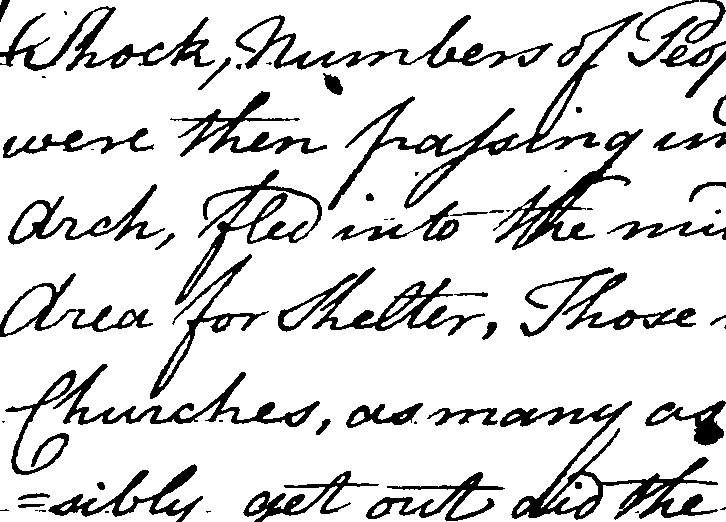 Shock, Numbers of Peop
were then passing un
Arch, fled into the mid
Area for Shelter, Those
Churches, as many as
=sibly get out did the